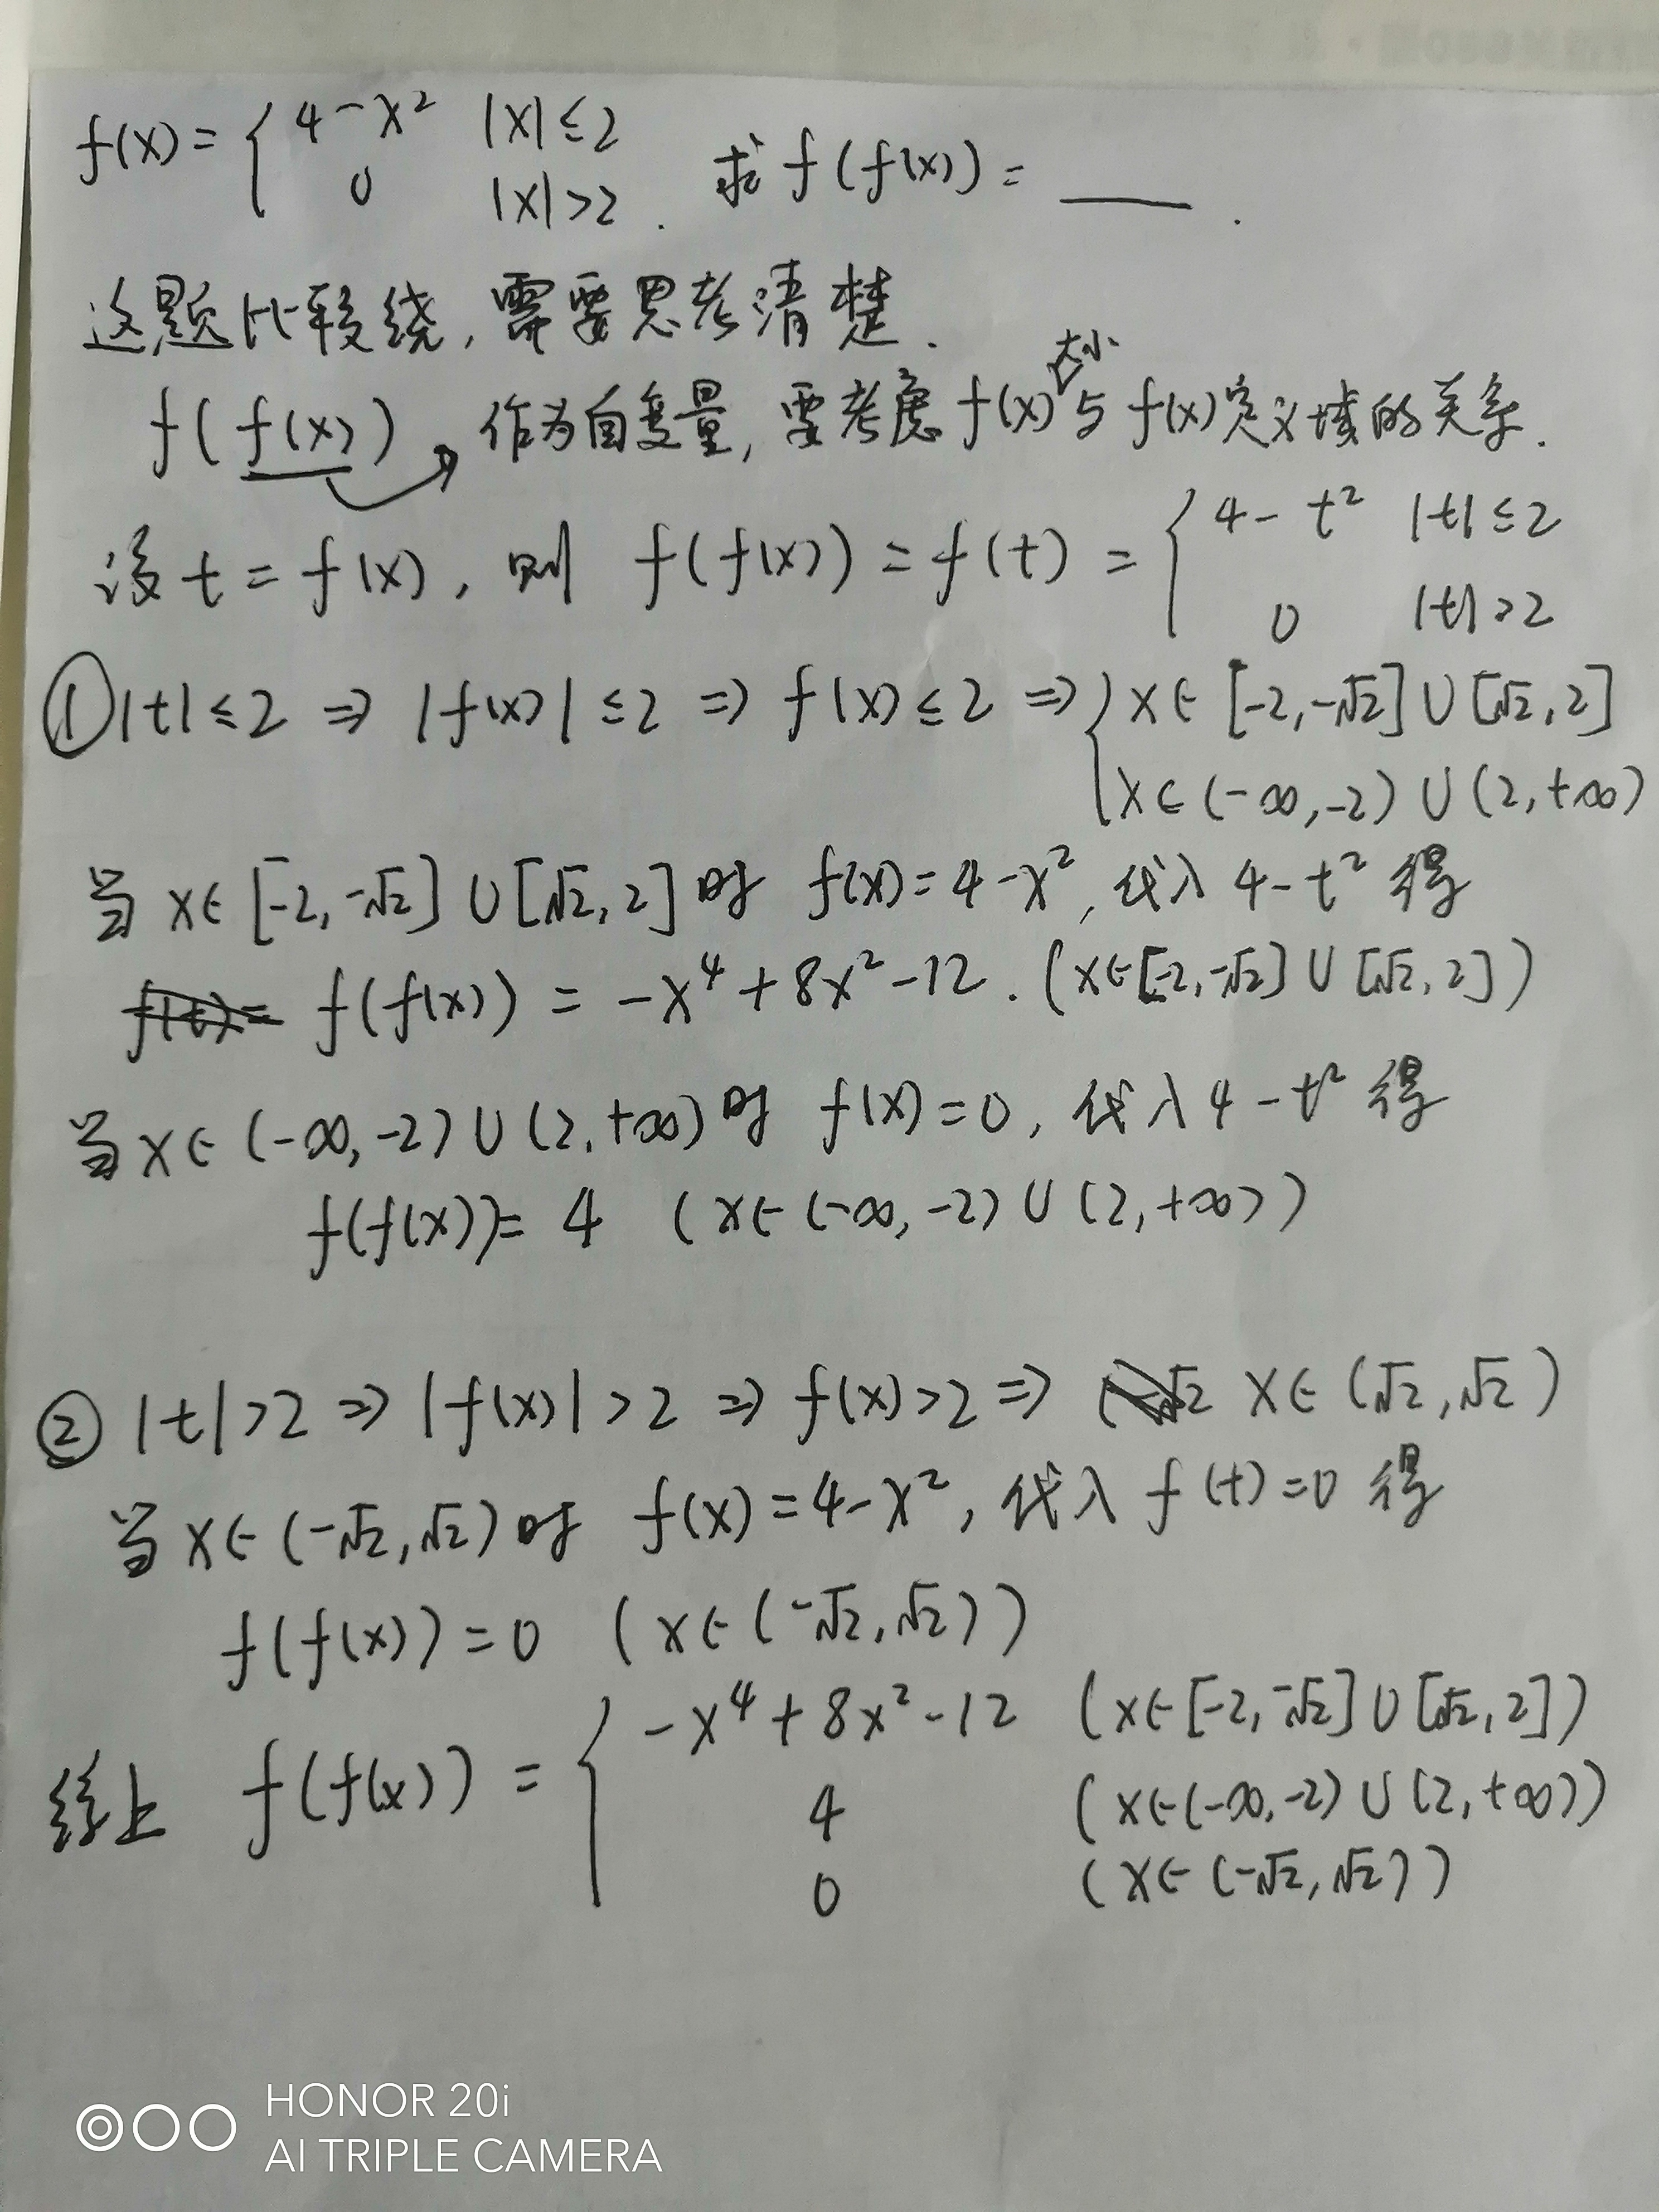 f(x) = { 4-x² |x|≤2
0 |x|>2 . 求 f(f(x)) = ____ .
这题比较绕, 需要思考清楚.
f(f(x)) 作为自变量, 要考虑 f(x)大小与 f(x)定义域的关系.
设 t = f(x), 则 f(f(x)) = f(t) = { 4-t² |t|≤2
0 |t|>2
① |t|≤2 ⇒ |f(x)|≤2 ⇒ f(x)≤2 ⇒ { x∈[-2,-√2]∪[√2,2]
x∈(-∞,-2)∪(2,+∞)
当 x∈[-2,-√2]∪[√2,2]时 f(x)=4-x², 代入 4-t² 得
f(t)= f(f(x)) = -x⁴+8x²-12. (x∈[-2,-√2]∪[√2,2])
当 x∈(-∞,-2)∪(2,+∞)时 f(x)=0, 代入 4-t² 得
f(f(x))= 4 (x∈(-∞,-2)∪(2,+∞))
② |t|>2 ⇒ |f(x)|>2 ⇒ f(x)>2 ⇒ √2 x∈(√2,√2)
当 x∈(-√2,√2)时 f(x)=4-x², 代入 f(t)=0 得
f(f(x))=0 (x∈(-√2,√2))
综上 f(f(x)) = { -x⁴+8x²-12 (x∈[-2,-√2]∪[√2,2])
4 (x∈(-∞,-2)∪(2,+∞))
0 (x∈(-√2,√2))
HONOR 20i
AI TRIPLE CAMERA